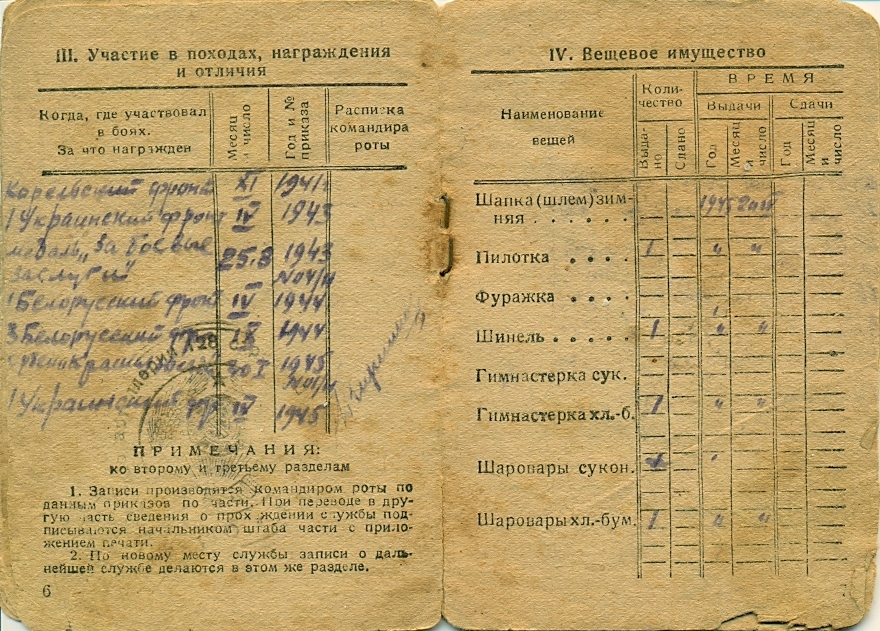 III. Участие в походах, награждения
и отличия
Когда, где участвовал
в боях.
За что награжден
Месяц
и число
Год и №
приказа
Расписка
командира
роты
Карельский фронт XI 1941 г
1 Украинский фронт IV 1943
медаль „За боевые
заслуги" 25.8 1943
№04/н
1 Белорусский фронт IV 1944
3 Белорусский фр IX 1944
30 I 1945
№01/н
1 Украинский фр IV 1945
ПРИМЕЧАНИЯ:
ко второму и третьему разделам
1. Записи производятся командиром роты по
данным приказов по части. При переводе в дру-
гую часть сведения о прохождении службы под-
писываются начальником штаба части с прило-
жением печати.
2. По новому месту службы записи о даль-
нейшей службе делаются в этом же разделе.
6
IV. Вещевое имущество
Наименование
вещей
Коли-
чество
ВРЕМЯ
Выдачи
Сдачи
Выда-
но
Сдано
Год
Месяц
и
число
Год
Месяц
и
число
Шапка (шлем) зим-
няя . . . . . . 1945
Пилотка . . . . 1 " "
Фуражка . . . .
Шинель . . . . . 1 " "
Гимнастерка сук.
Гимнастерка хл.-б. 1 " "
Шаровары сукон.
Шаровары хл.-бум. 1 " "